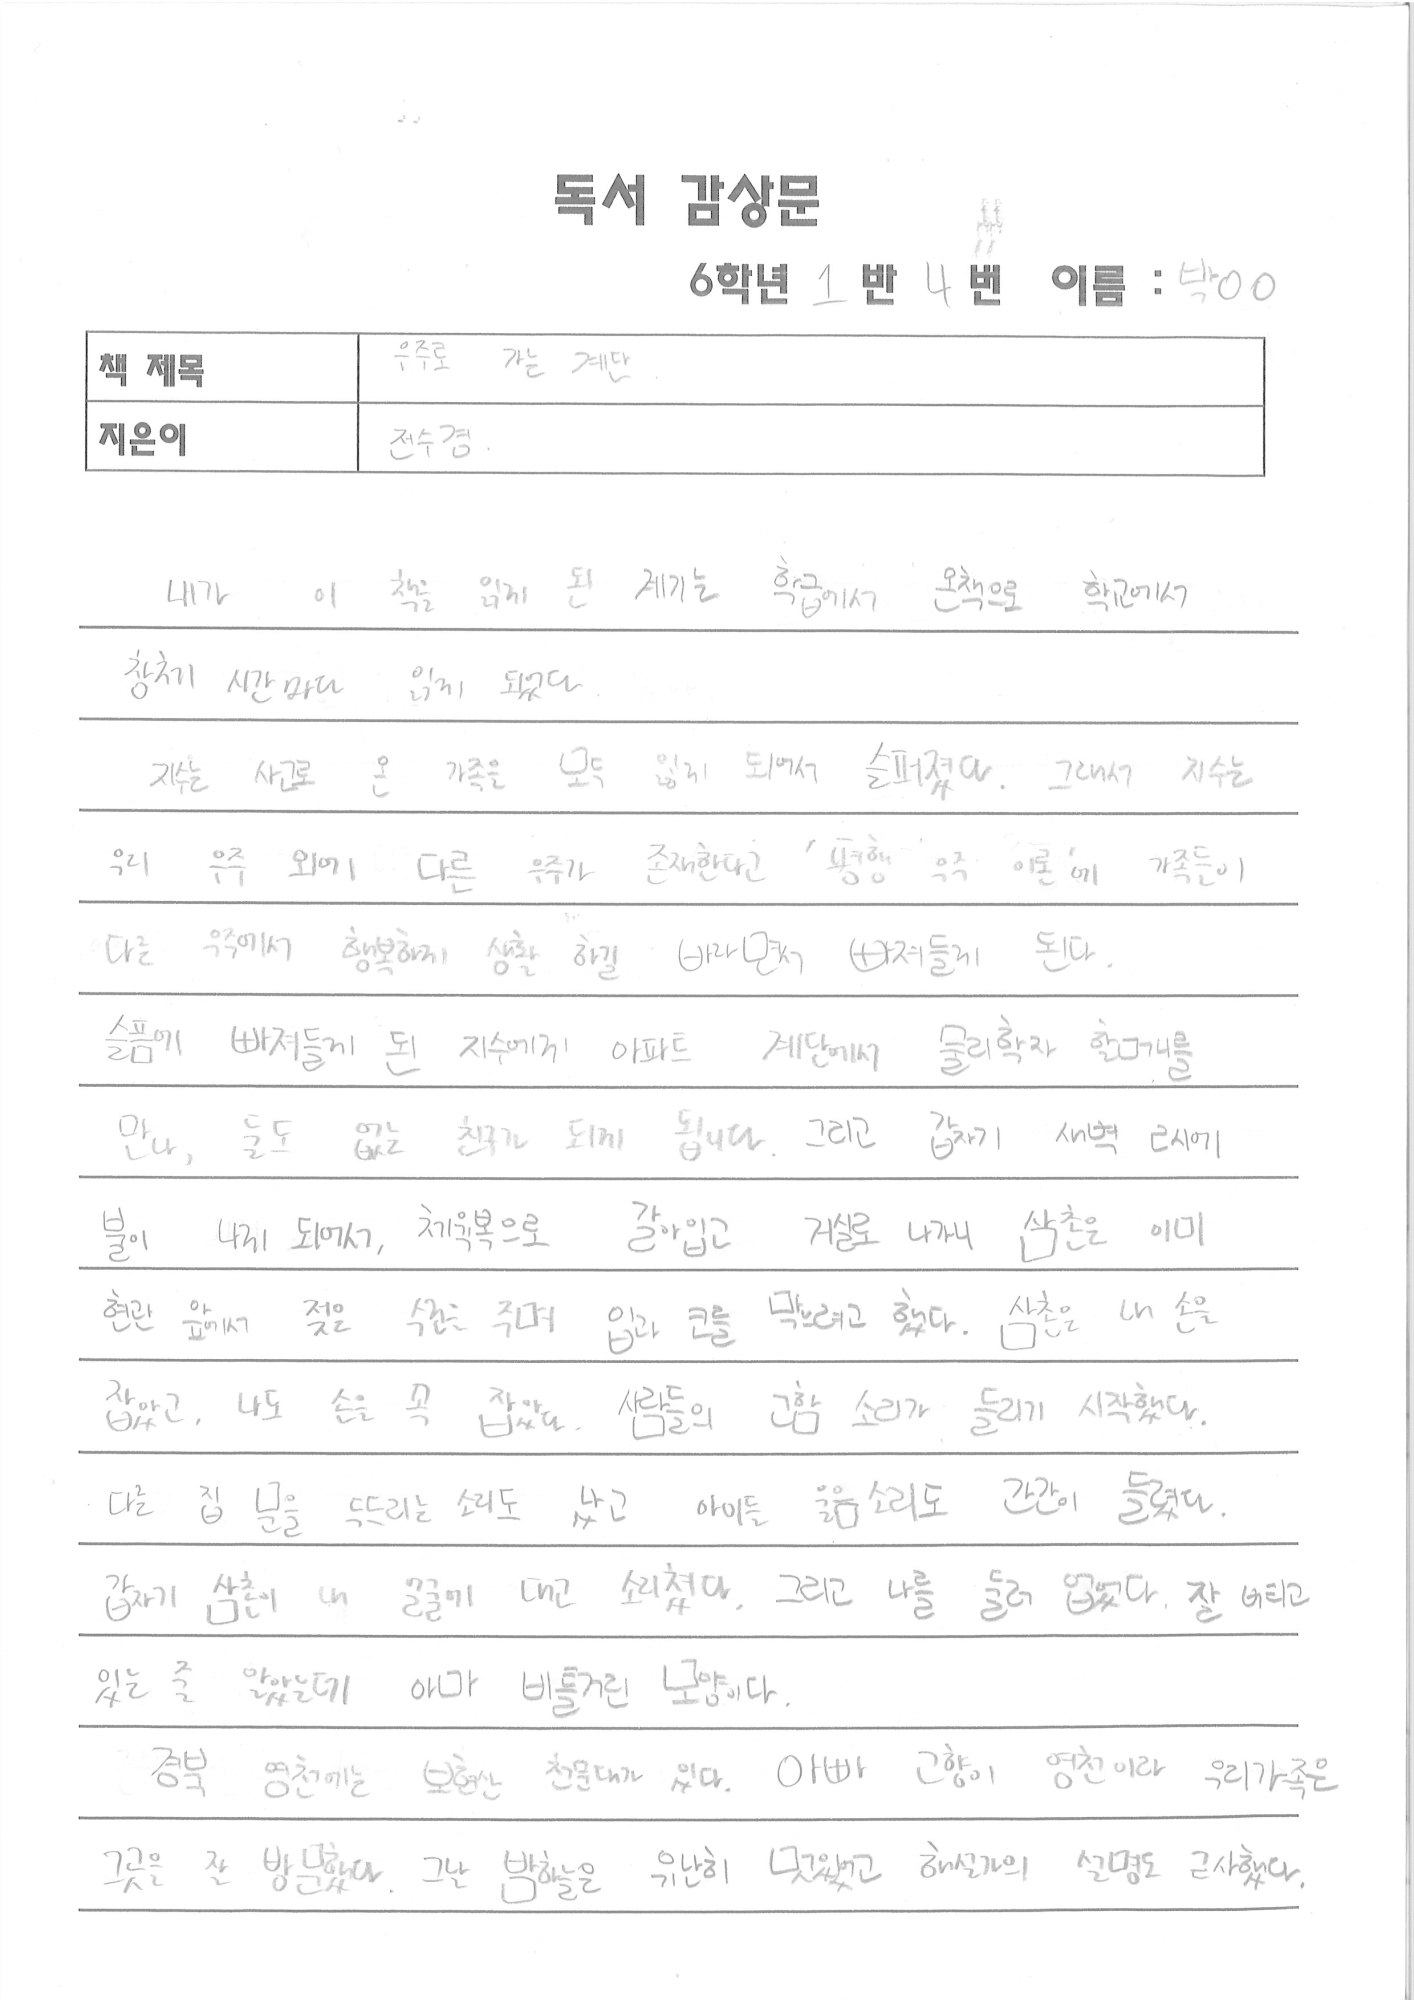 독서 감상문
6학년 1 반 4 번 이름 : 박OO
책 제목 우주로 가는 계단.
지은이 전수경.
내가 이 책을 읽게 된 계기는 학급에서 온책으로 학교에서
창체 시간마다 읽게 되었다.
지수는 사고로 온 가족은 모두 잃게 되어서 슬퍼졌다. 그래서 지수는
우리 우주 외에 다른 우주가 존재한다고 '평행 우주 이론'에 가족들이
다른 우주에서 행복하게 생활 하길 바라면서 빠져들게 된다.
슬픔에 빠져들게 된 지수에게 아파트 계단에서 물리학자 할머니를
만나, 둘도 없는 친구가 되게 됩니다. 그리고 갑자기 새벽 2시에
불이 나게 되어서, 체육복으로 갈아입고 거실로 나가니 삼촌은 이미
현관 앞에서 젖은 수건을 주며 입과 코를 막으려고 했다. 삼촌은 내 손을
잡았고, 나도 손을 꼭 잡았다. 사람들의 고함 소리가 들리기 시작했다.
다른 집 문을 두드리는 소리도 났고 아이들 울음소리도 간간이 들렸다.
갑자기 삼촌이 내 얼굴에 대고 소리쳤다. 그리고 나를 둘러 업었다. 잘 버티고
있는 줄 알았는데 아마 비틀거린 모양이다.
경북 영천에는 보현산 천문대가 있다. 아빠 고향이 영천이라 우리가족은
그곳을 잘 방문했다. 그날 밤하늘은 유난히 멋있었고 해설가의 설명도 근사했다.